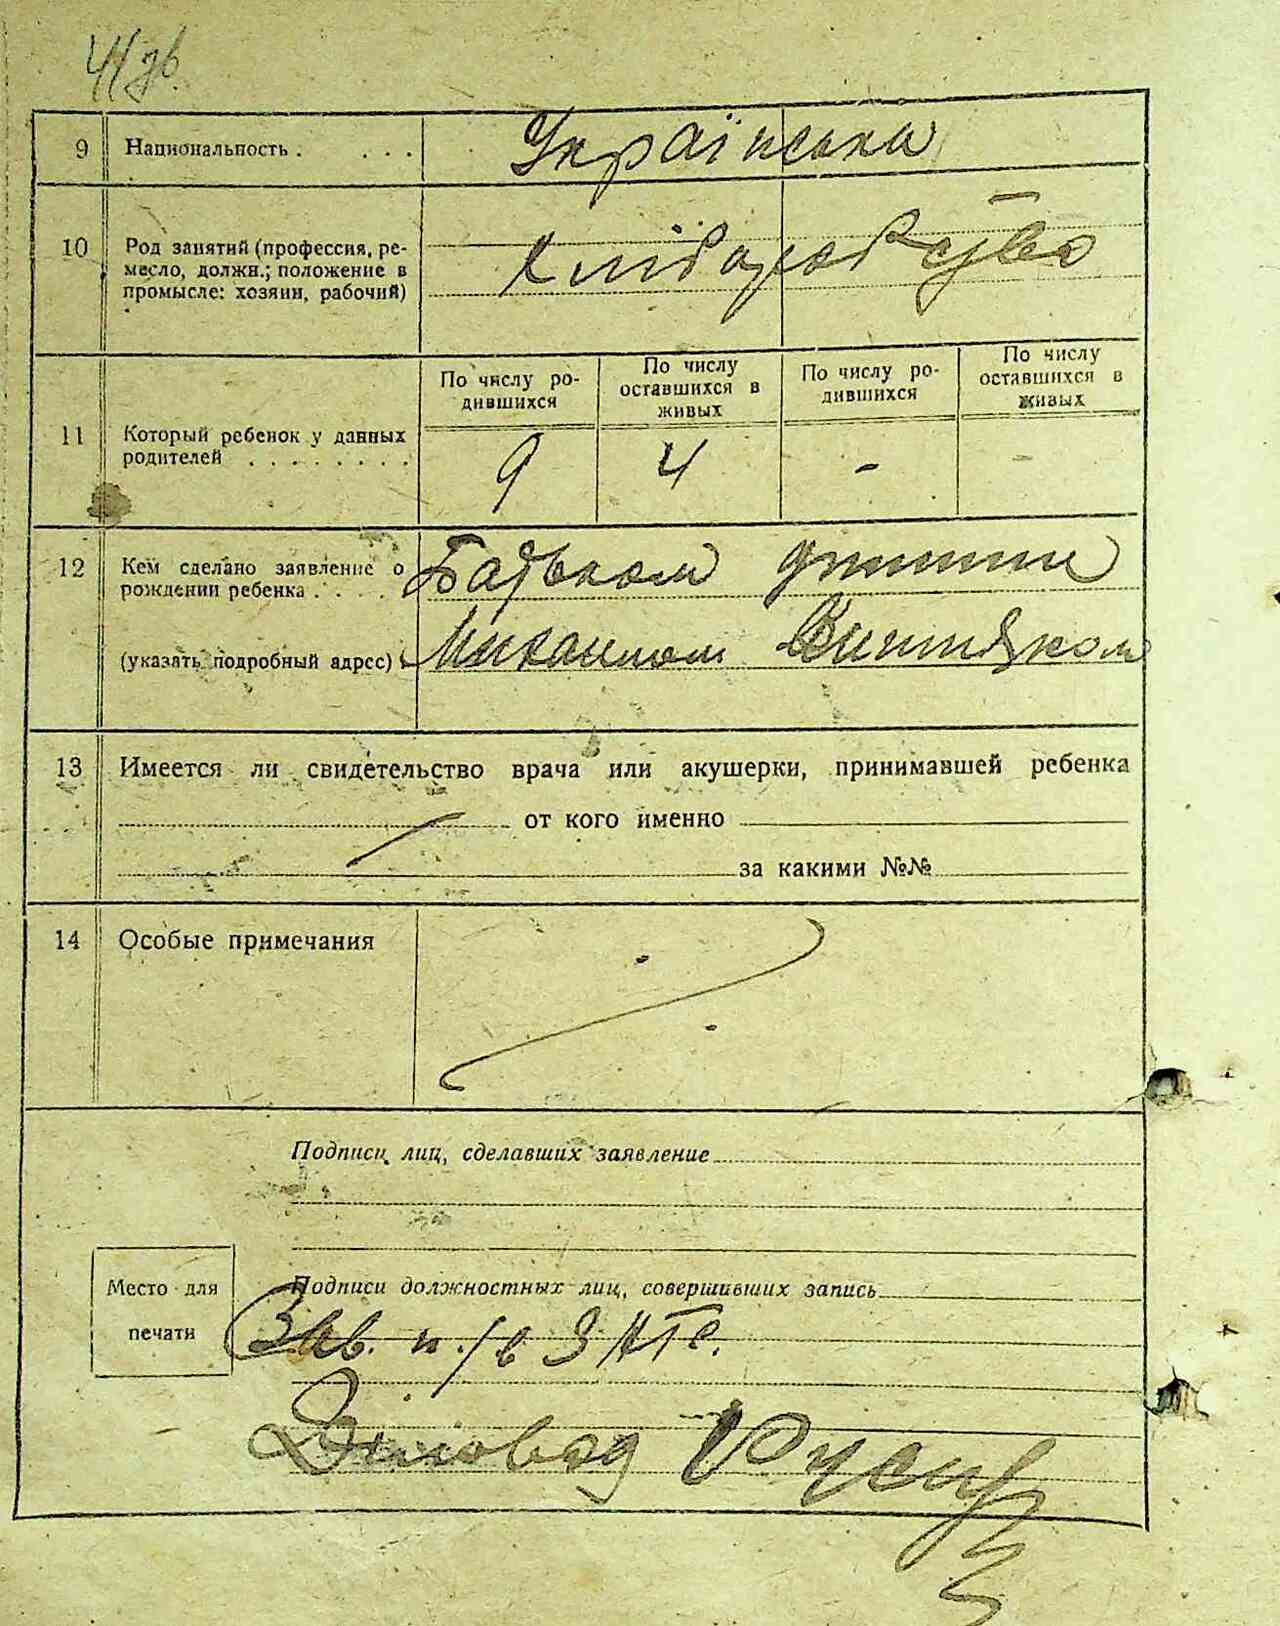 41 зв.
9 Национальность . . . . Українська
10 Род занятий (профессия, ре-
месло, должн.; положение в
промысле: хозяин, рабочий)
хліборобство
11 Который ребенок у данных
родителей . . . . . . . .
По числу ро-
дившихся
По числу
оставшихся в
живых
По числу ро-
дившихся
По числу
оставшихся в
живых
9 4 - -
12 Кем сделано заявление о
рождении ребенка . . . .
Батьком дитини
(указать подробный адрес)
Михайлом
13 Имеется ли свидетельство врача или акушерки, принимавшей ребенка
от кого именно
за какими №№
14 Особые примечания
Подписи лиц, сделавших заявление
Место для
печати
Подписи должностных лиц, совершивших запись
Зав. п/в ЗАГС.
Діловод